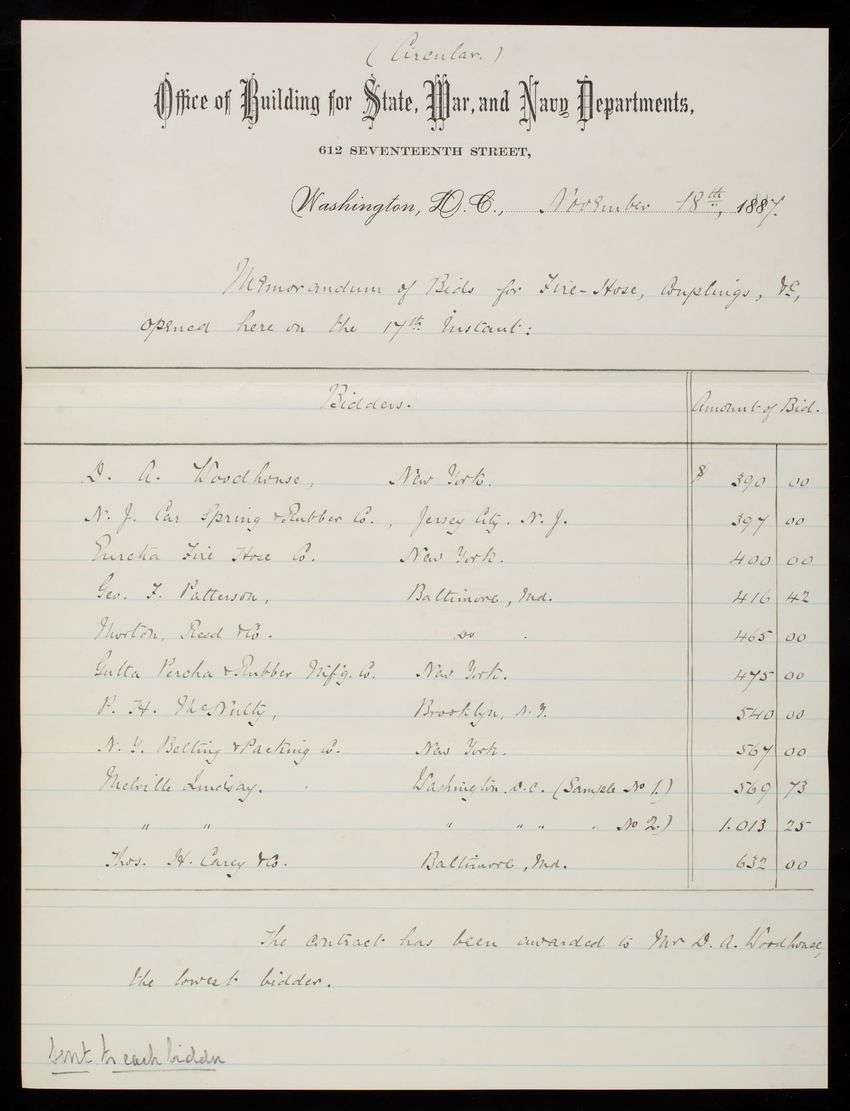 ( Circular. )
Office of Building for State, War, and Navy Departments,
612 SEVENTEENTH STREET,
Washington, D. C., November 18th, 1887.
Memorandum of Bids for Fire-Hose, Couplings, &c,
opened here on the 17th Instant:
Bidders. Amount of Bid.
D. A. Woodhouse, New York. $ 390 00
N. J. Car Spring & Rubber Co., Jersey City. N. J. 397 00
Eureka Fire Hose Co. New York. 400 00
Geo. F. Patterson, Baltimore, Md. 416 42
Morton, Reed & Co. do . 465 00
Gutta Percha & Rubber Mf'g. Co. New York. 475 00
P. H. McNulty, Brooklyn, N.Y. 540 00
N. Y. Belting & Packing Co. New York. 567 00
Melville Lindsay. Washington. D.C. (Sample No 1.) 569 73
" " " " " " No 2.) 1.013 25
Thos. H. Carey & Co. Baltimore, Md. 632 00
The contract has been awarded to Mr D. A. Woodhouse,
the lowest bidder.
Sent to each bidder